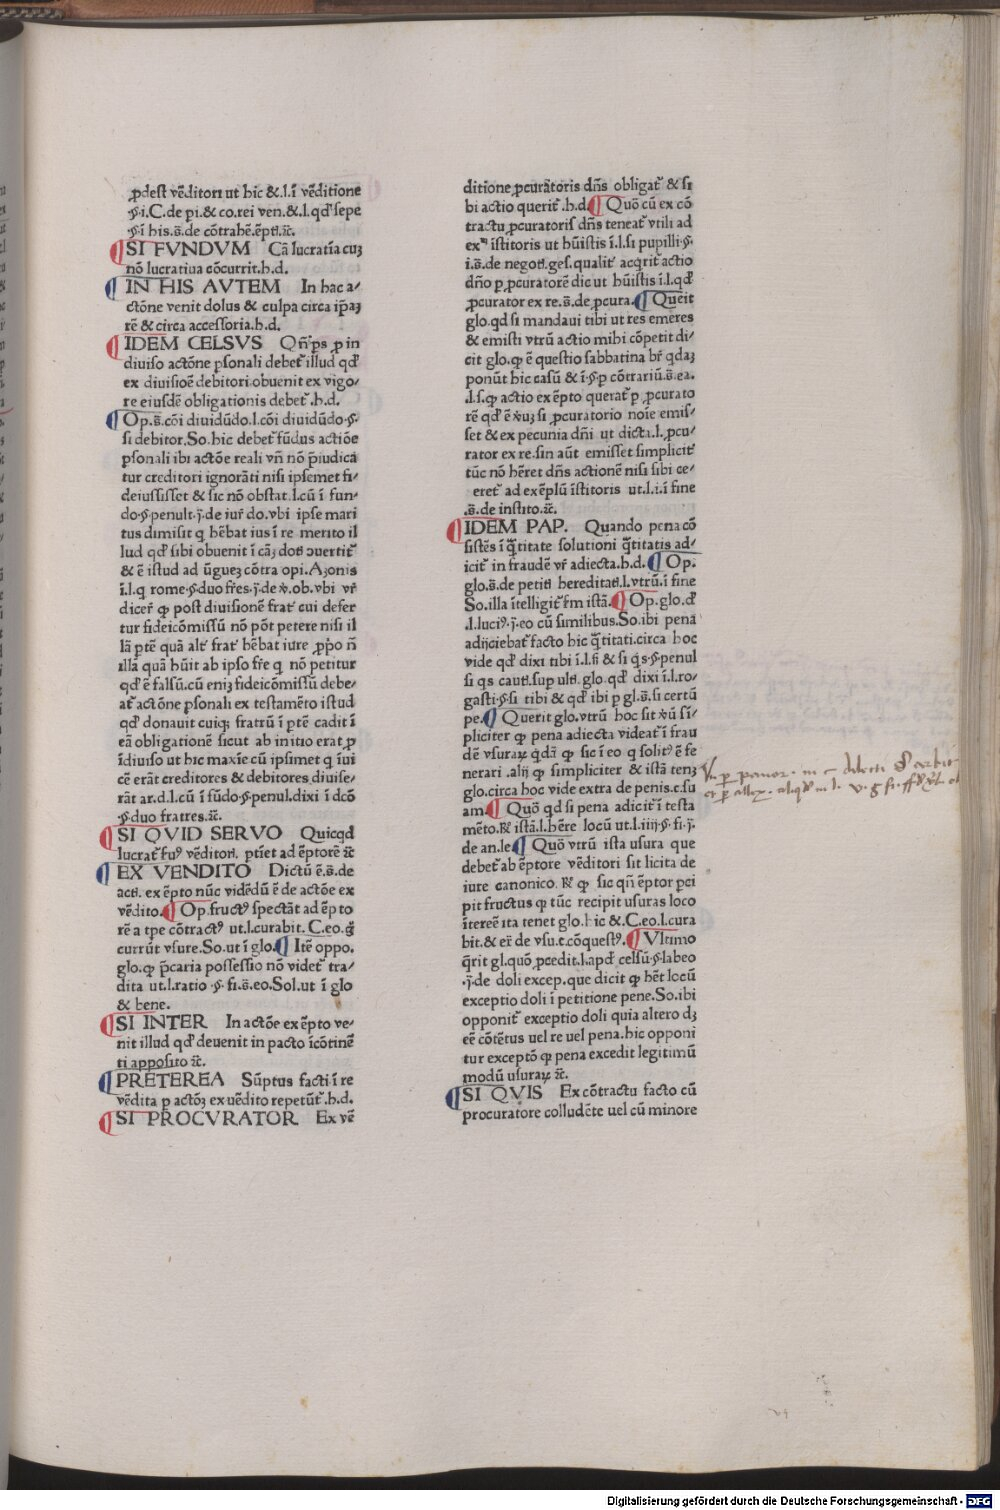 ꝓdest vẽditori ut hic &.l.ĩ vẽditione
.§.i.C.de pi.& co.rei ven.&.l.qđ sepe
.§.ĩ his.s̃.de cõtrahẽ.ẽptĩ.⁊c̃.
¶SI FVNDVM Cã lucratĩa cuʒ
nõ lucratiua cõcurrit.h.d.
¶IN HIS AVTEM In hac a⸗
ctõne venit dolus & culpa circa ip̃aʒ
rẽ & circa accessoria.h.d.
¶IDEM CELSVS Qñ ps ꝓ in
diuiso actõne ꝑsonali debet᷑ illud qđ
ex diuisioẽ debitori.obuenit ex vigo⸗
re eiusdẽ obligationis debet᷑.h.d.
¶Op.s̃.cõi diuidũdo.l.cõi diuidũdo.§.
si debitor.So.hic debet᷑ fũdus actiõe
ꝑsonali ibi actõe reali vñ nõ p̃iudica
tur creditori ignorãti nisi ipsemet fi⸗
deiussisset & sic nõ obstat.l.cũ ĩ fun⸗
do.§.penult.j̃.de iur̃ do.vbi ipse mari
tus dimisit q hẽbat ius ĩ re merito il
lud qđ sibi obuenit ĩ cãʒ dotĩ ↄuertit᷑
& ẽ istud ad ũgueʒ cõtra opi.Azonis
ĩ.l.q rome.§.duo fr̃es.j̃.de v̾.ob.vbi vr̃
dicer̃ ꝙ post diuisionẽ frat᷑ cui defer
tur fideicõmissũ nõ põt petere nisi il
lã ꝑtẽ quã alt᷑ frat᷑ hẽbat iure ꝓp̃o ñ
illã quã hũit ab ipso fr̃e q nõ petitur
qđ ẽ falsũ.cũ eniʒ fideicõmissũ debe⸗
at᷑ actõne ꝑsonali ex testamẽto istud
qđ donauit cuiqʒ fratrũ ĩ ꝑtẽ cadit ĩ
eã obligationẽ sicut ab initio erat ꝓ
ĩdiuiso ut hic maxie cũ ipsimet q ĩuĩ
cẽ erãt creditores & debitores diuise⸗
rãt ar.d.l.cũ ĩ fũdo.§.penul.dixi ĩ dc̃o
.§.duo fratres.⁊c̃.
¶SI QVID SERVO Quicqd
lucrat᷑ fuꝰ vẽditori. ptĩet ad ẽptorẽ ⁊c̃
¶EX VENDITO Dictũ ẽ.s̃.de
acti. ex ẽpto nũc vidẽdũ ẽ de actõe ex
vẽdito.¶Op.fructꝰ spectãt ad ẽpto
rẽ a tpe cõtractꝰ ut.l.curabit. C.eo.g̃
currũt vsure.So.ut ĩ glo.¶Itẽ oppo.
glo.ꝙ p̃caria possessio nõ videt᷑ tra⸗
dita ut.l.ratio.§.fi.s̃.eo.Sol.ut ĩ glo
& bene.
¶SI INTER In actõe ex ẽpto ve⸗
nit illud qđ deuenit in pacto ĩcõtinẽ
ti apposito ⁊c̃.
¶PRETEREA Sũptus facti ĩ re
vẽdita ꝑ actõʒ ex uẽdito repetũt᷑.h.d.
¶SI PROCVRATOR Ex vẽ
ditione ꝓcurãtoris dñs obligat᷑ & si
bi actio querit᷑.h.d.¶Quõ cũ ex cõ
tractu ꝓcuratoris dñs teneat᷑ vtili ad
exᵐ ĩstitoris ut hũistis ĩ.l.si pupilli.§.
i.s̃.de negotĩ.ges.qualit᷑ acq̃rit᷑ actio
dño ꝑ ꝓcuratorẽ dic ut hũistis ĩ.l.qđ
ꝓcurator ex re.s̃.de ꝓcura.¶Querit
glo.qd si mandaui tibi ut res emeres
& emisti vtrũ actio mihi cõpetit di⸗
cit glo.ꝙ ẽ questio sabbatina br̃ qdaʒ
ponũt hic casũ & ĩ.§.ꝓ cõtrariũ.s̃.ea.
.l.s.ꝙ actio ex ẽpto querat᷑ ꝑ ꝓcurato
rẽ qđ ẽ v̾uʒ si ꝓcuratorio noĩe emis⸗
set & ex pecunia dñi ut dicta.l.ꝓcu⸗
rator ex re.sin aũt emisset simplicit᷑
tũc nõ hẽret dñs actionẽ nisi sibi ce⸗
eret᷑ ad exẽplũ ĩstitoris ut.l.i.ĩ fine
.s̃.de instito.⁊c̃.
¶IDEM PAP. Quando pena cõ
sistẽs ĩ q̃titate solutioni q̃titatis ad⸗
icit᷑ in fraudẽ vr̃ adiecta.h.d.¶Op.
glo.s̃.de petitĩ hereditatĩ.l.vtrũ.ĩ fine
So.illa ĩtelligit᷑ fm istã.¶Op.glo.đ
.l.luciꝰ.j̃.eo cũ similibus.So.ibi pena
adijciebat᷑ facto hic q̃titati.circa hoc
vide qđ dixi tibi ĩ.l.fi & si q̃s.§.penul
si qs cautĩ.sup ultĩ. glo.qđ dixi ĩ.l.ro⸗
gasti.§.si tibi & qđ ibi ꝑ gl.s̃.si certũ
pe.¶Querit glo.vtrũ hoc sit v̾ũ si⸗
pliciter ꝙ pena adiecta videat᷑ ĩ frau
dẽ vsuraꝝ q̃dã ꝙ sic ĩ eo q solitꝰ ẽ fe
nerari .alij ꝙ simpliciter & istã tenʒ
glo.circa hoc vide extra de penis.c.su
am.¶Quõ qđ si pena adicit᷑ ĩ testa
mẽto.℞ istã.l.hẽre locũ ut.l.iiij.§.fi.j̃.
de an.le.¶Quõ vtrũ ista usura que
debet᷑ ab ẽptore vẽditori sit licita de
iure canonico. ℞ ꝙ sic qñ ẽptor ꝑci
pit fructus ꝙ tũc recipit vsuras loco
ĩtereẽ ita tenet glo.hic &.C.eo.l.cura
bit.& er̃ de vsu.c.cõquestꝰ.¶Vltimo
q̃rit gl.quõ ꝓcedit.l.apđ celsũ.§.labeo
.j̃.de doli excep.que dicit ꝙ hẽt locũ
exceptio doli ĩ petitione pene.So.ibi
opponit᷑ exceptio doli quia altero dʒ
eẽ cõtẽtus uel re uel pena.hic opponi
tur exceptõ ꝙ pena excedit legitimũ
modũ vsuraꝝ ⁊c̃.
¶SI QVIS Ex cõtractu facto cũ
procuratore colludẽte uel cũ minore
Digitalisierung gefördert durch die Deutsche Forschungsgemeinschaft - DFG